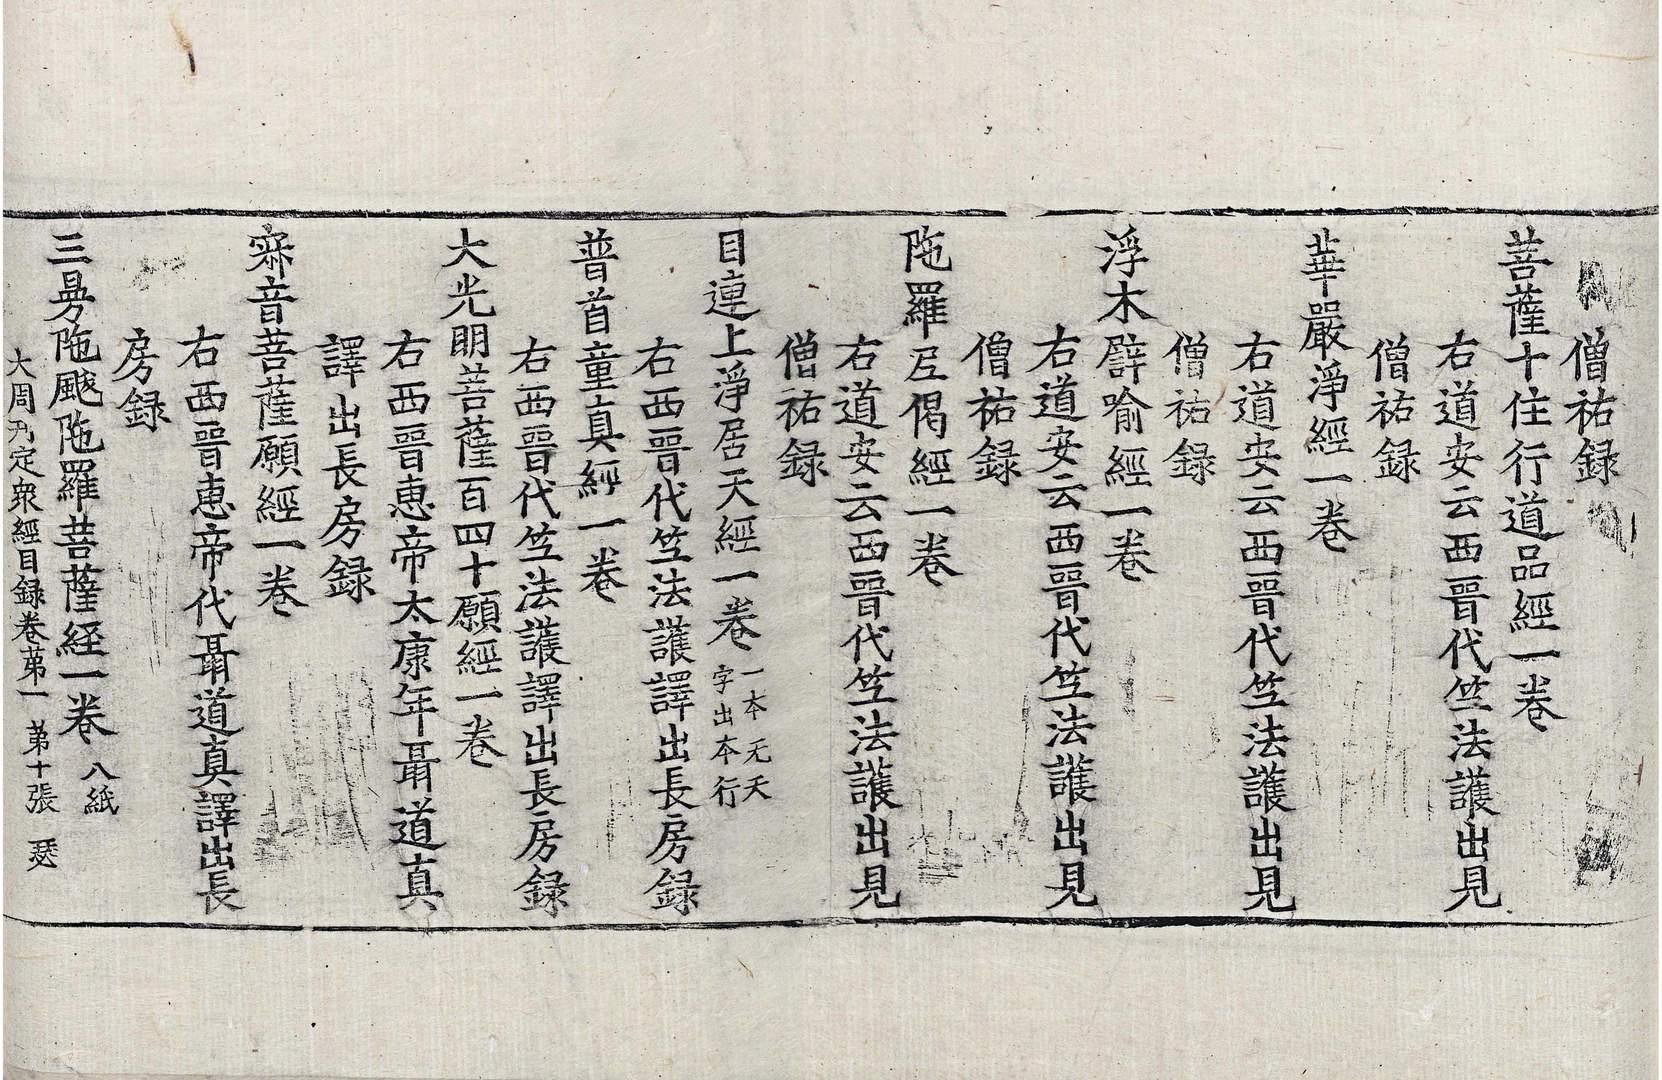 僧祐録
菩薩十住行道品經一卷
右道安云西晉代竺法護出見
僧祐録
華嚴淨經一卷
右道安云西晉代竺法護出見
僧祐録
浮木譬喻經一卷
右道安云西晉代竺法護出見
僧祐録
陁羅尼偈經一卷
右道安云西晉代竺法護出見
僧祐録
目連上淨居天經一卷 一本无天
字出本行
右西晉代竺法護譯出長房録
普首童真經一卷
右西晉代竺法護譯出長房録
大光明菩薩百四十願經一卷
右西晉惠帝太康年聶道真
譯出長房録
寂音菩薩願經一卷
右西晉惠帝代聶道真譯出長
房録
三曼陁颰陁羅菩薩經一卷 八紙
大周刋定衆經目録卷苐一 苐十張